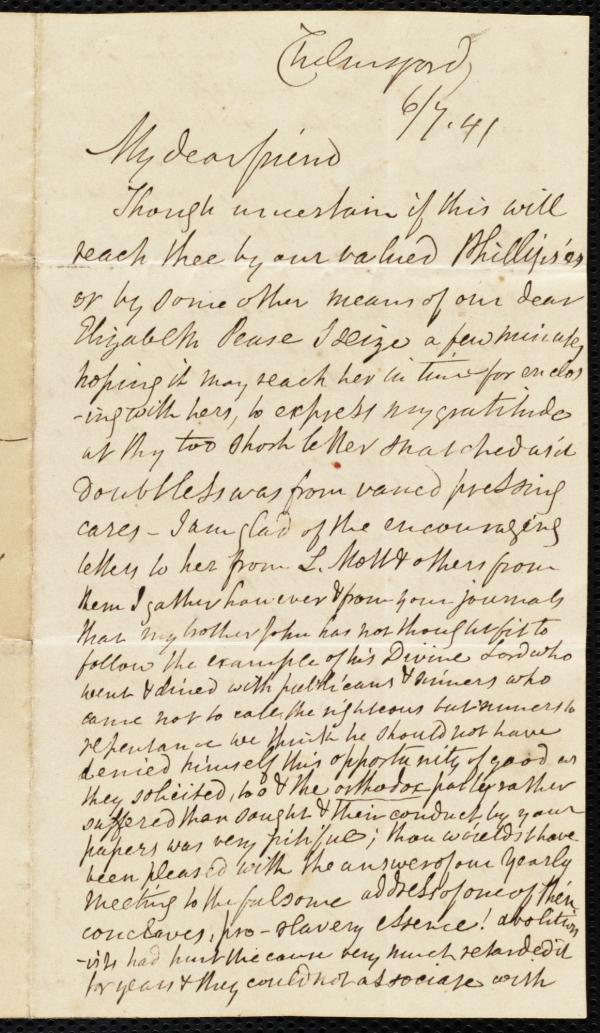 Chelmsford
6/7.41
My dear friend
Though uncertain if this will
reach thee by our valued Phillips'es
or by some other means of our dear
Elizabeth Pease I seize a few minutes
hoping it may reach her in time for enclos
-ing with hers, to express my gratitude
at thy too short letter snatched as it
doubtless was from varied pressing
cares - I am glad of the encouraging
letters to her from L. Mott & others from
them I gather however & from your journals
that my brother John has not thought fit to
follow the example of his Divine Lord who
went & dined with publicans & sinners who
came not to call the righteous but sinners to
repentance we think he should not have
denied himself this opportunity of good as
they solicited, too & the orthodox party rather
suffered than sought & their conduct by your
papers was very pitiful; thou wouldst have
been pleased with the answer of our Yearly
Meeting to the fulsome address of one of their
conclaves, pro-slavery essence! abolition
-ists had hurt the cause very much retarded it
for years & they could not associate with